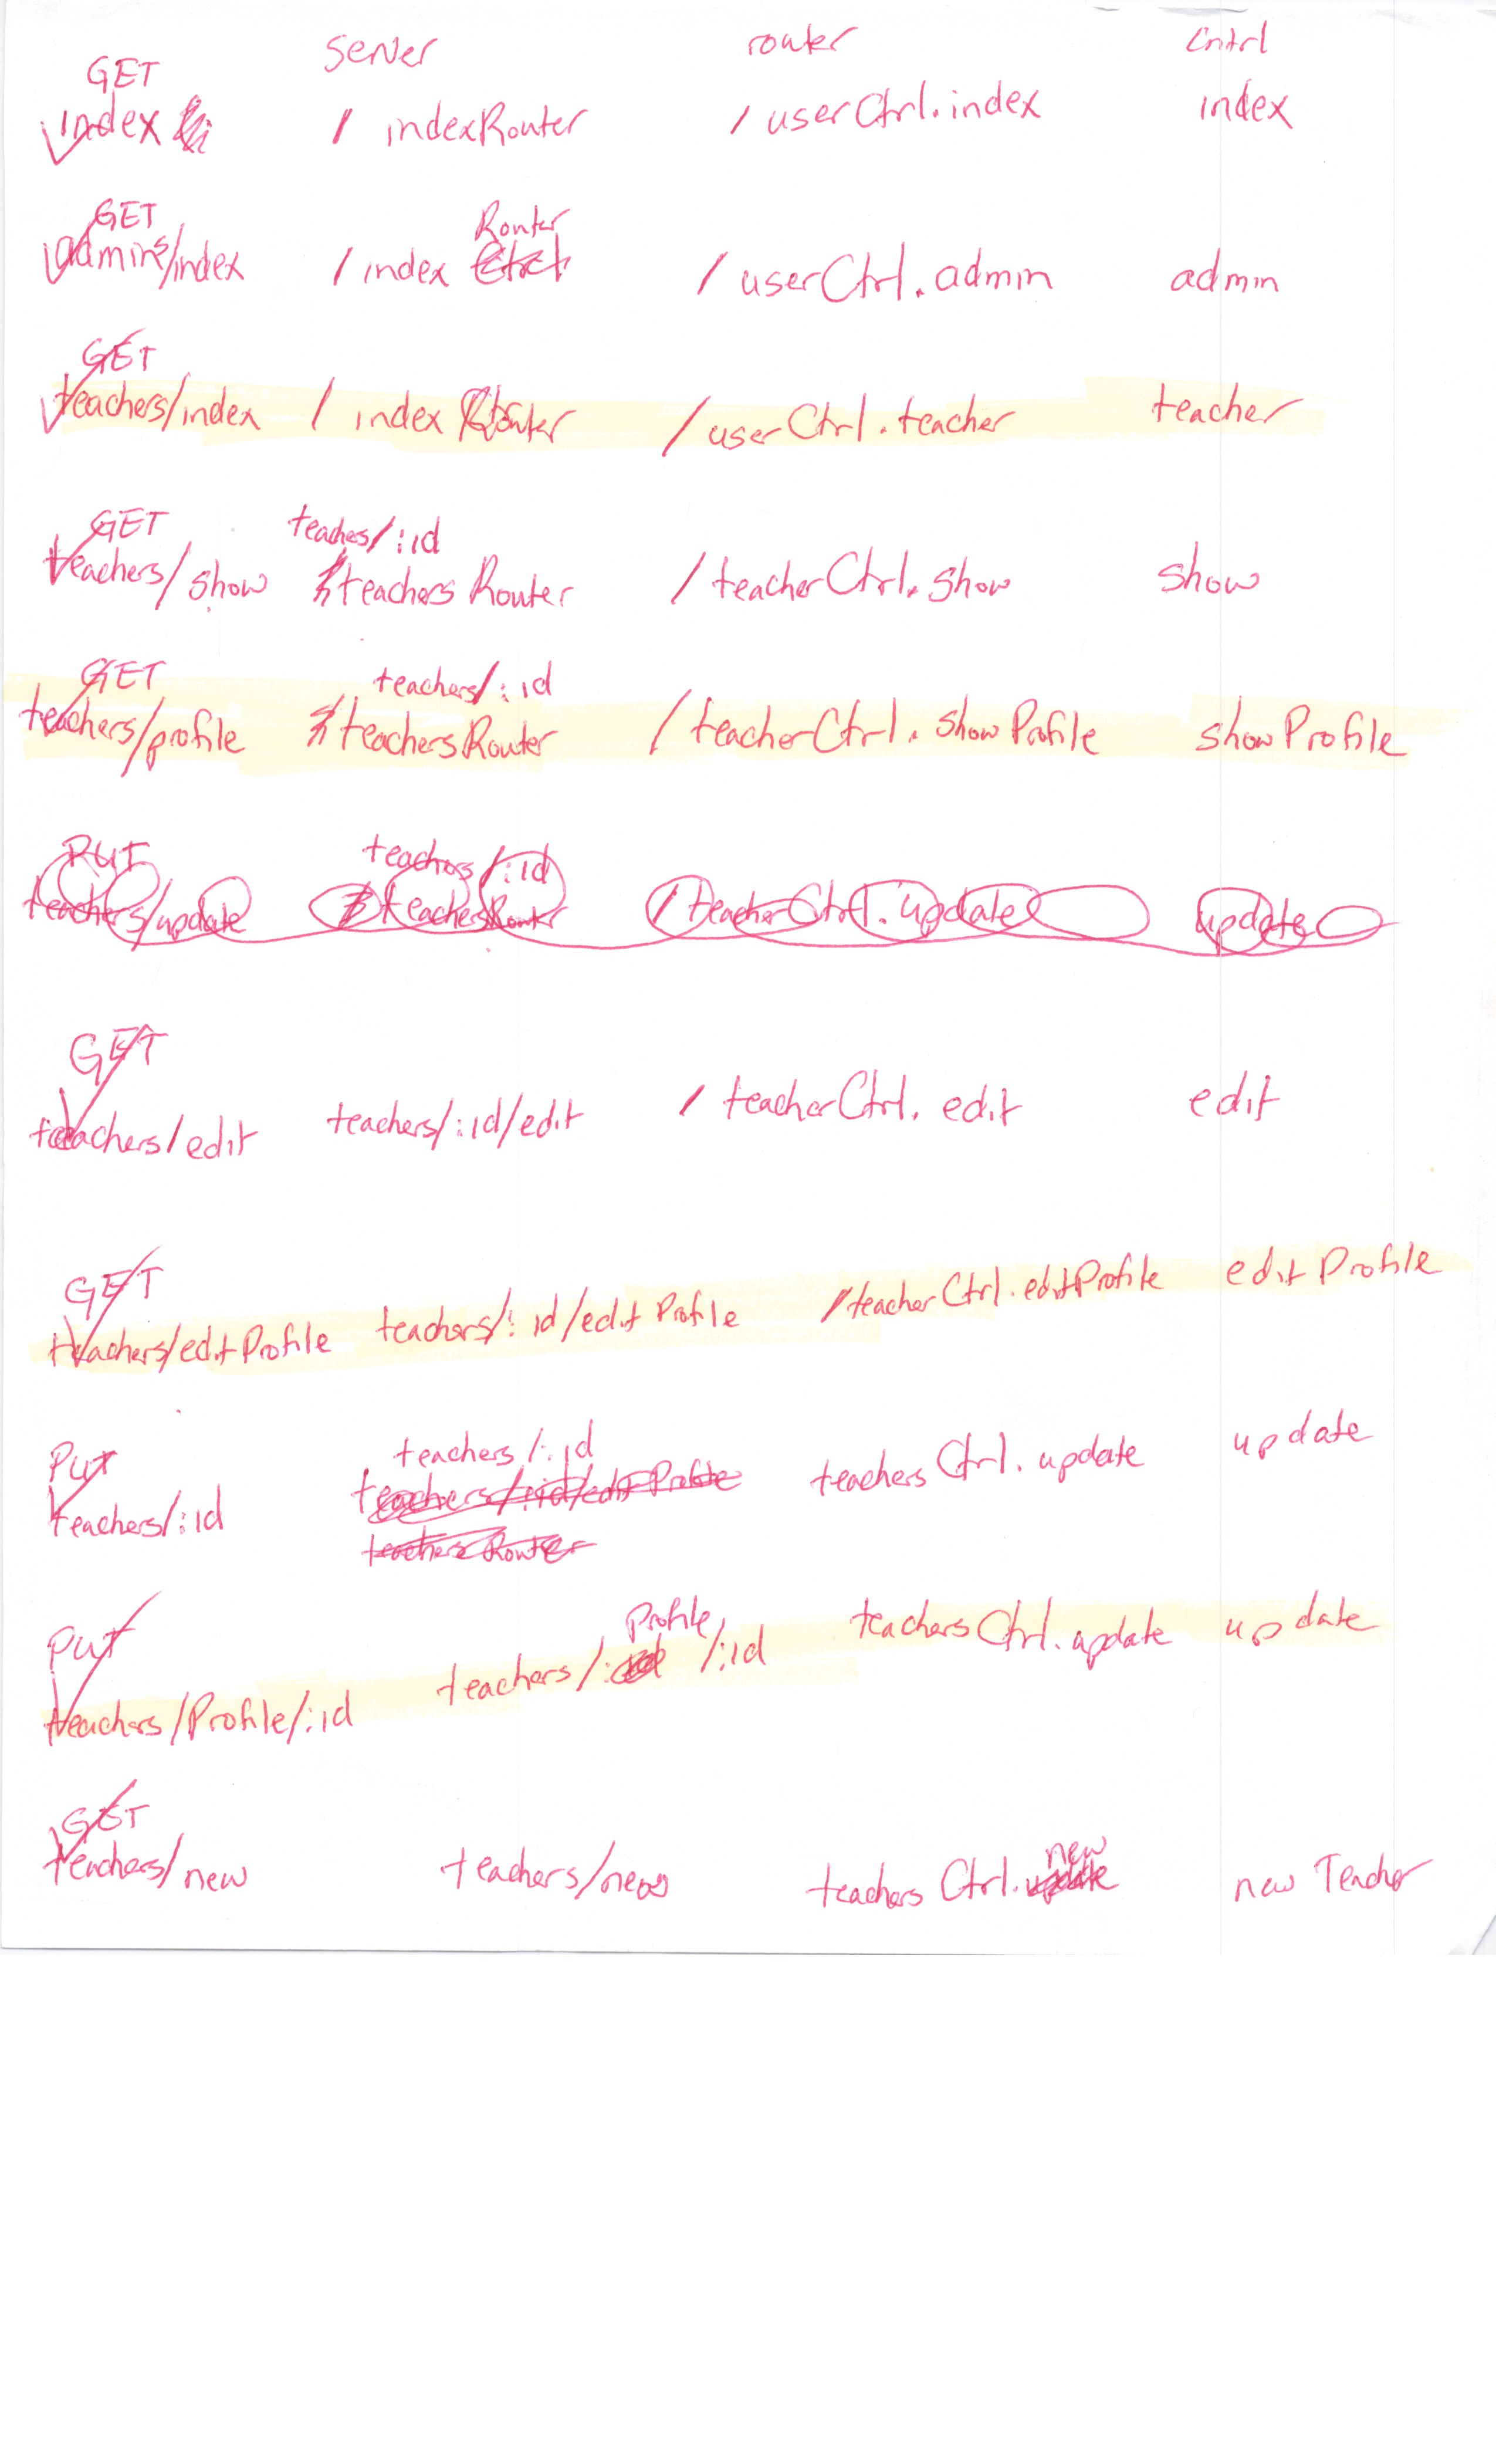 server router Cntrl
GET
index / indexRouter / userCtrl.index index
GET Router
admins/index / index / userCtrl.admin admin
GET
teachers/index / index Router / userCtrl.teacher teacher
GET teaches/:id
teachers/show teachers Router / teacherCtrl.show show
GET teachers/:id
teachers/profile teachersRouter / teacherCtrl.showProfile showProfile
PUT teachers/:id
teachers/update teachersRouter / teacherCtrl.update update
GET
teachers/edit teachers/:id/edit / teacherCtrl.edit edit
GET
teachers/editProfile teachers/:id/editProfile / teacherCtrl.editProfile editProfile
Put teachers/:id teachersCtrl.update update
teachers/:id teachers/:id/editProfile
teachers Router
Put Profile
teachers/Profile/:id teachers/ /:id teachersCtrl.update update
GET new
teachers/new teachers/new teachersCtrl.update newTeacher